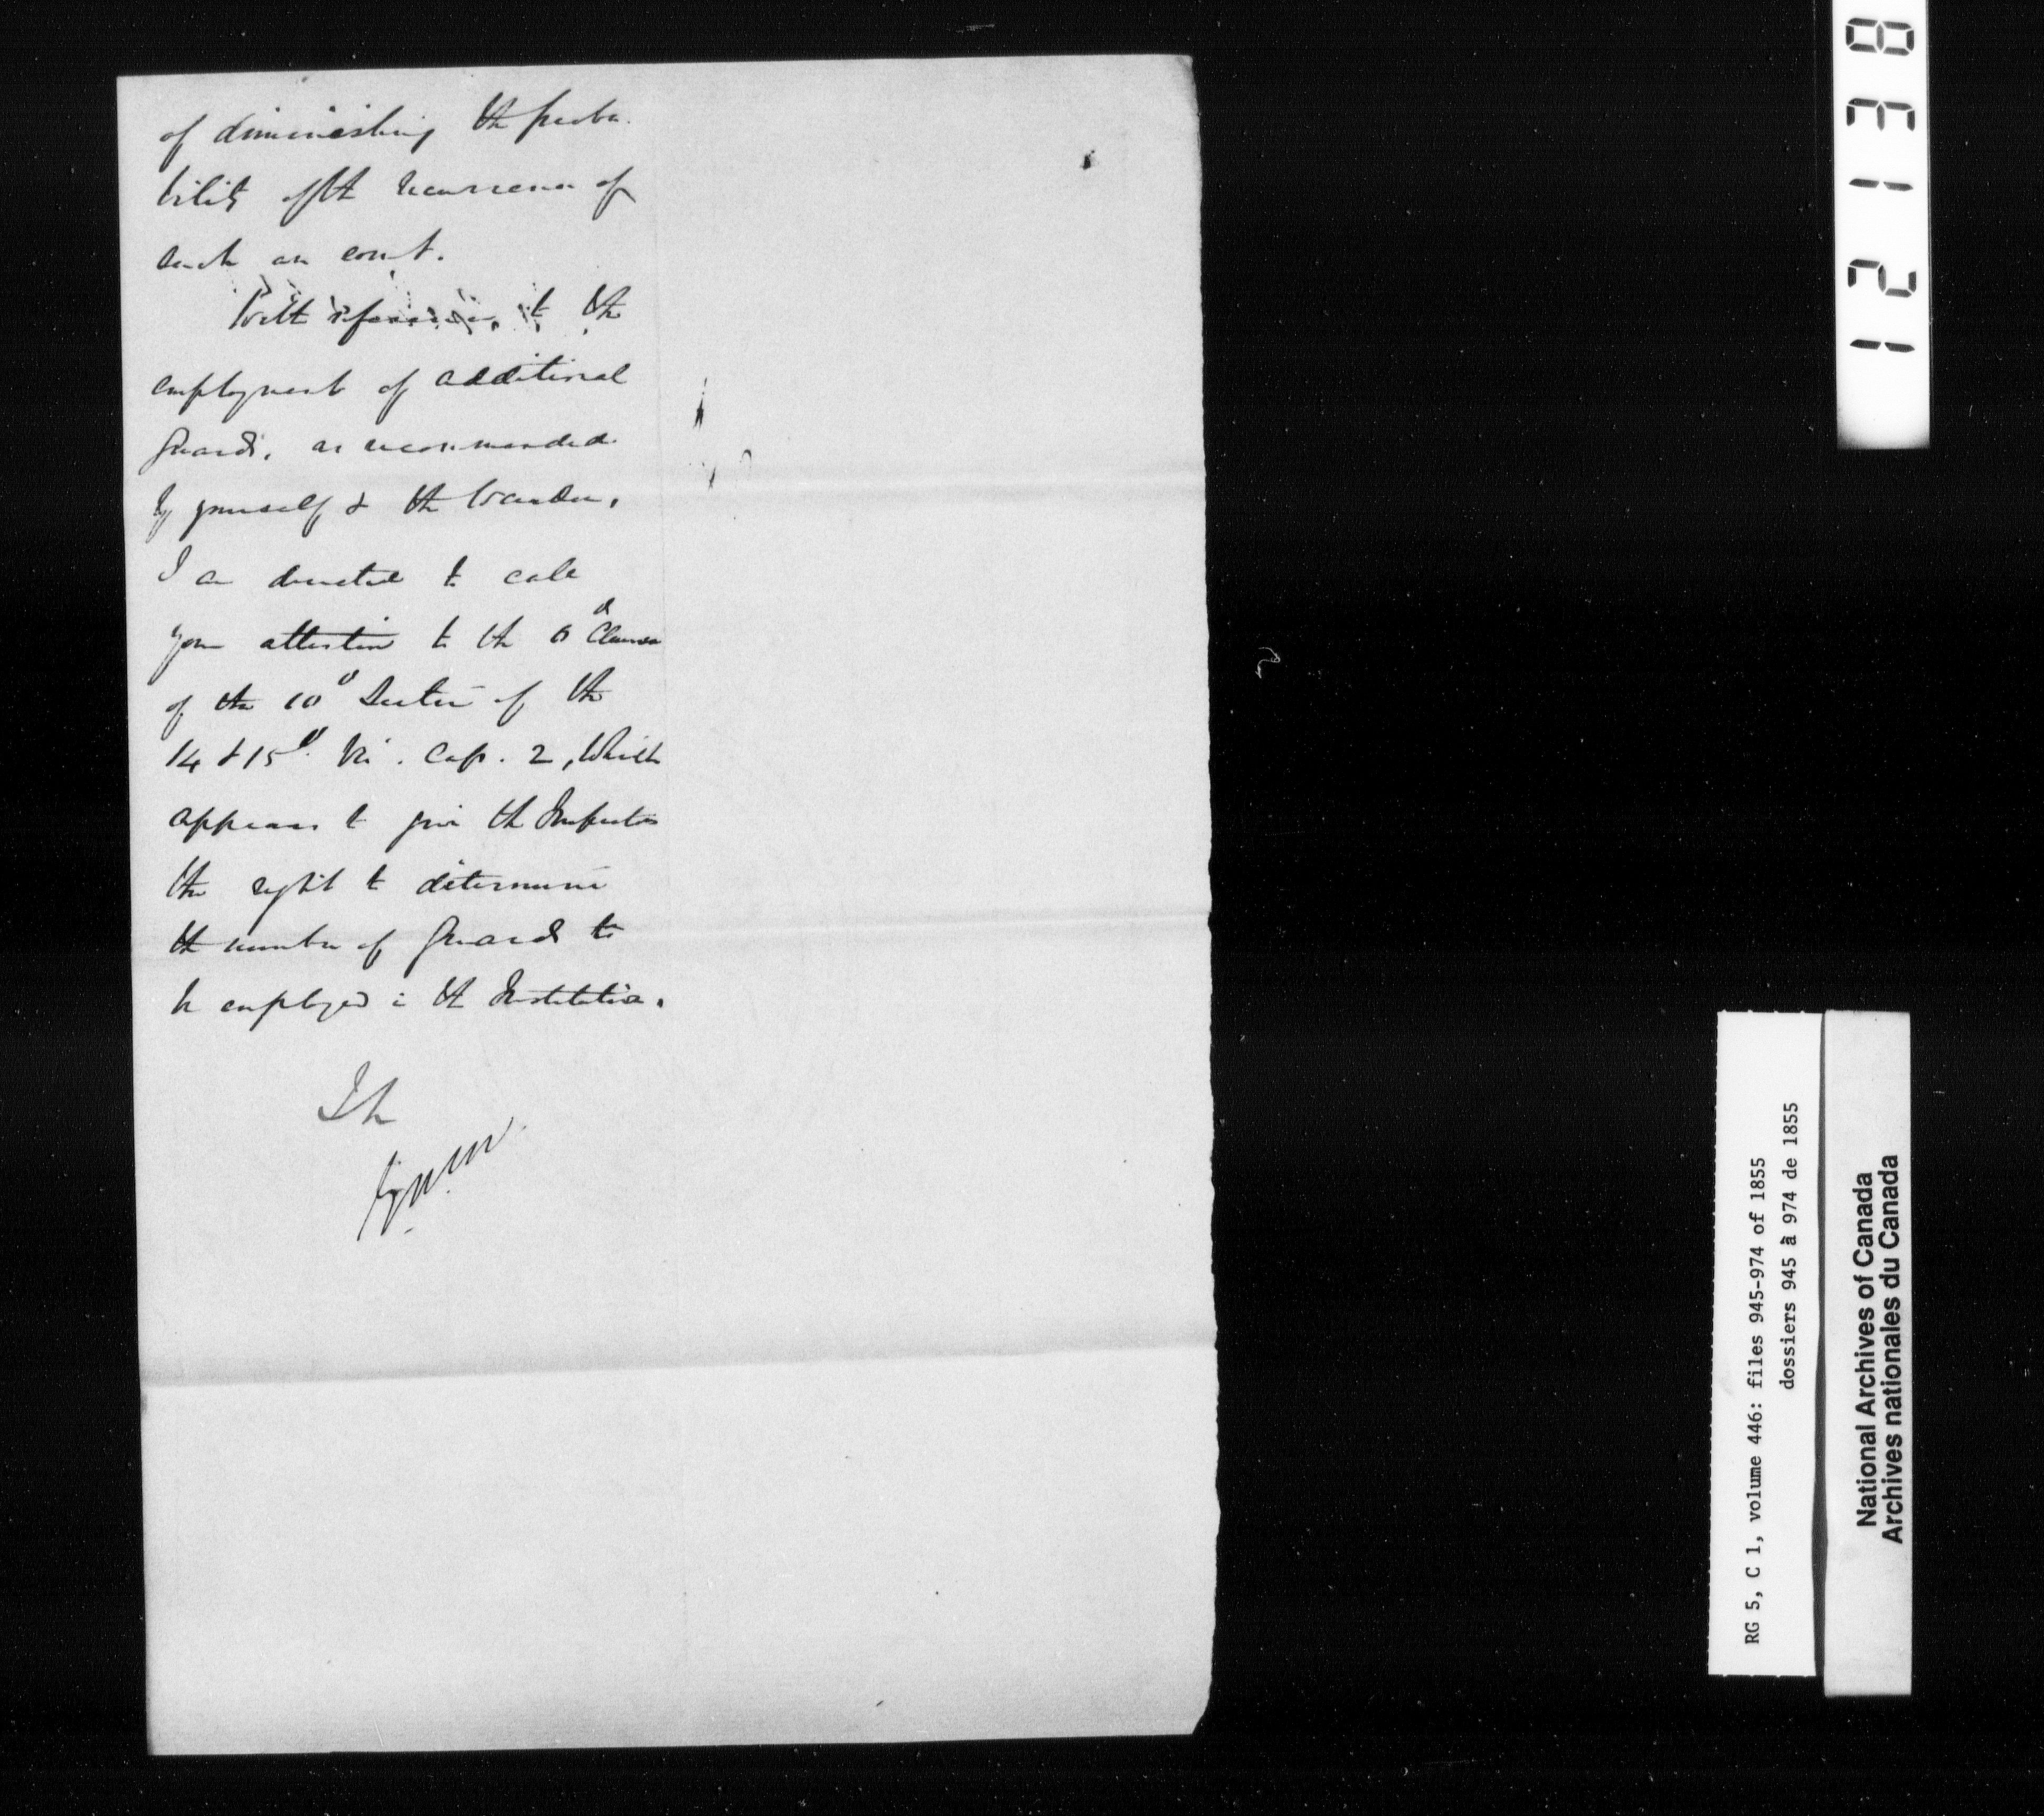 of diminishing the proba-
bility of the recurrence of
such an event.
With reference to the
employment of additional
Guards, as recommended
by yourself & the Warden,
I am directed to call
your attention to the 6th Clause
of the 10th Section of the
14 & 15th Vic. Cap. 2, which
appears to give the Inspectors
the right to determine
the number of Guards to
be employed in the Institution.
I h
12138
RG 5, C 1, volume 446: files 945-974 of 1855
dossiers 945 à 974 de 1855
National Archives of Canada
Archives nationales du Canada